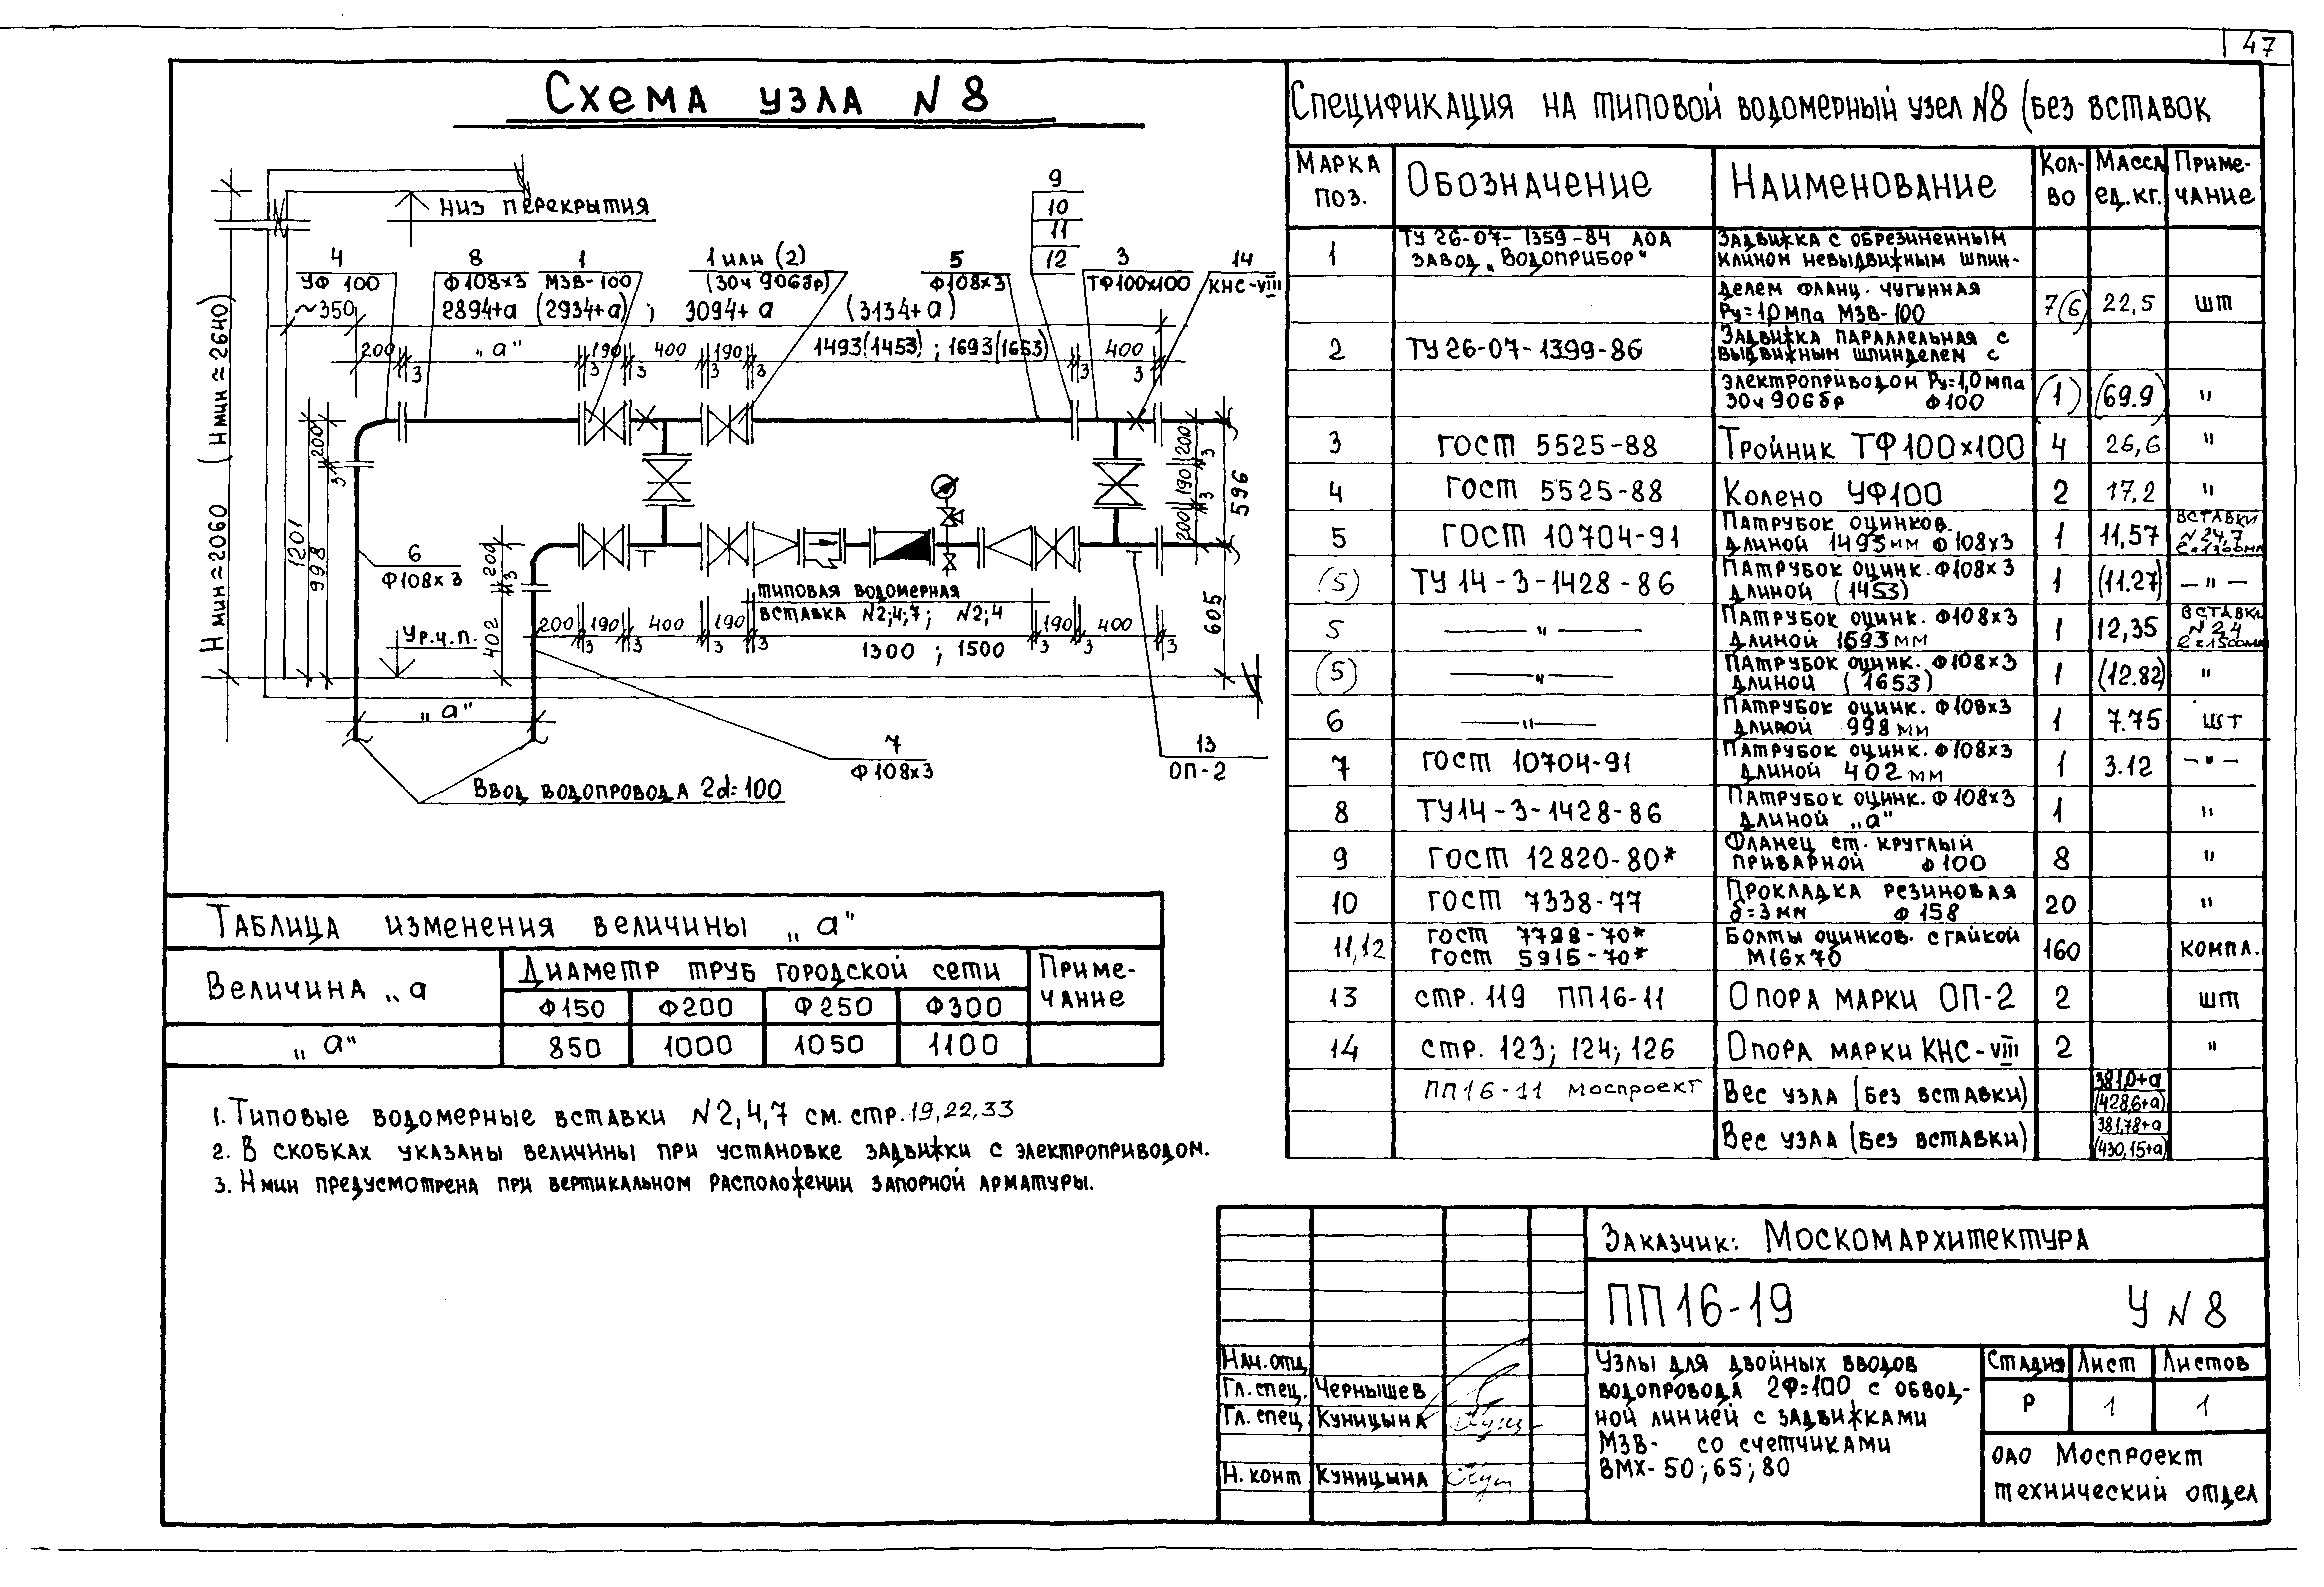 47
Схема узла N 8
Низ перекрытия
4
УФ 100
8
Ф108х3
1
МЗВ-100
1 или (2)
(30ч 906бр)
5
Ф108х3
9
10
11
12
3
ТФ100х100
14
КНС-VIII
~350
2894+а (2934+а) ; 3094+а (3134+а)
200 3 „а" 3 190 3 400 3 190 3 1493(1453) ; 1693(1653) 3 400 3
Нмин≈2060 (Нмин≈2640)
1201
998
200
3
6
Ф108х3
Ур.ч.п.
200
3
402
200 3 190 3 400 3 190 3
типовая водомерная
вставка N2;4;7; N2;4
1300 ; 1500
3 190 3 400 3
200 3 190 3 200
596
605
„а"
7
Ф108х3
13
ОП-2
Ввод водопровода 2d=100
Таблица изменения величины „а"
Величина „а
Диаметр труб городской сети
Приме-
чание
Ф150 Ф200 Ф250 Ф300
„а" 850 1000 1050 1100
1. Типовые водомерные вставки N2,4,7 см. стр. 19,22,33
2. В скобках указаны величины при установке задвижки с электроприводом.
3. Нмин предусмотрена при вертикальном расположении запорной арматуры.
Спецификация на типовой водомерный узел N8 (без вставок
Марка поз. Обозначение Наименование Кол-во Масса ед.кг. Приме-чание
1 ТУ 26-07-1359-84 АОА Задвижка с обрезиненным
завод „Водоприбор" клином невыдвижным шпин-
делем фланц. чугунная
Ру=1,0мпа МЗВ-100 7(6) 22,5 шт
2 ТУ 26-07-1399-86 Задвижка параллельная с
выдвижным шпинделем с
электроприводом Ру=1,0мпа
30ч 906бр Ф100 (1) (69.9) "
3 ГОСТ 5525-88 Тройник ТФ100х100 4 26,6 "
4 ГОСТ 5525-88 Колено УФ100 2 17.2 "
5 ГОСТ 10704-91 Патрубок оцинков.
длиной 1493мм Ф108х3 1 11,57 вставки N2,4,7 ℓ=1300мм
(5) ТУ 14-3-1428-86 Патрубок оцинк. Ф108х3
длиной (1453) 1 (11.27) — " —
5 — " — Патрубок оцинк. Ф108х3
длиной 1693мм 1 12,35 вставки N2,4 ℓ=1500мм
(5) — " — Патрубок оцинк. Ф108х3
длиной (1653) 1 (12.82) "
6 — " — Патрубок оцинк. Ф108х3
длиной 998мм 1 7.75 шт
7 ГОСТ 10704-91 Патрубок оцинк. Ф108х3
длиной 402мм 1 3.12 — " —
8 ТУ14-3-1428-86 Патрубок оцинк. Ф108х3
длиной „а" 1 "
9 ГОСТ 12820-80* Фланец ст. круглый
приварной Ф100 8 "
10 ГОСТ 7338-77 Прокладка резиновая
δ=3мм Ф158 20 "
11,12 ГОСТ 7798-70* Болты оцинков. с гайкой
ГОСТ 5915-70* М16х70 160 компл.
13 стр. 119 ПП16-11 Опора марки ОП-2 2 шт
14 стр. 123; 124; 126 Опора марки КНС-VIII 2 "
ПП16-11 Моспроект Вес узла (без вставки) 381,0+а
(428,6+а)
Вес узла (без вставки) 381,78+а
(430,15+а)
Заказчик: Москомархитектура
ПП16-19 У N 8
Нач. отд.
Гл. спец. Чернышев
Гл. спец. Куницына
Н. конт Куницына
Узлы для двойных вводов
водопровода 2Ф=100 с обвод-
ной линией с задвижками
МЗВ- со счетчиками
ВМХ-50; 65; 80
Стадия Лист Листов
Р 1 1
ОАО Моспроект
технический отдел